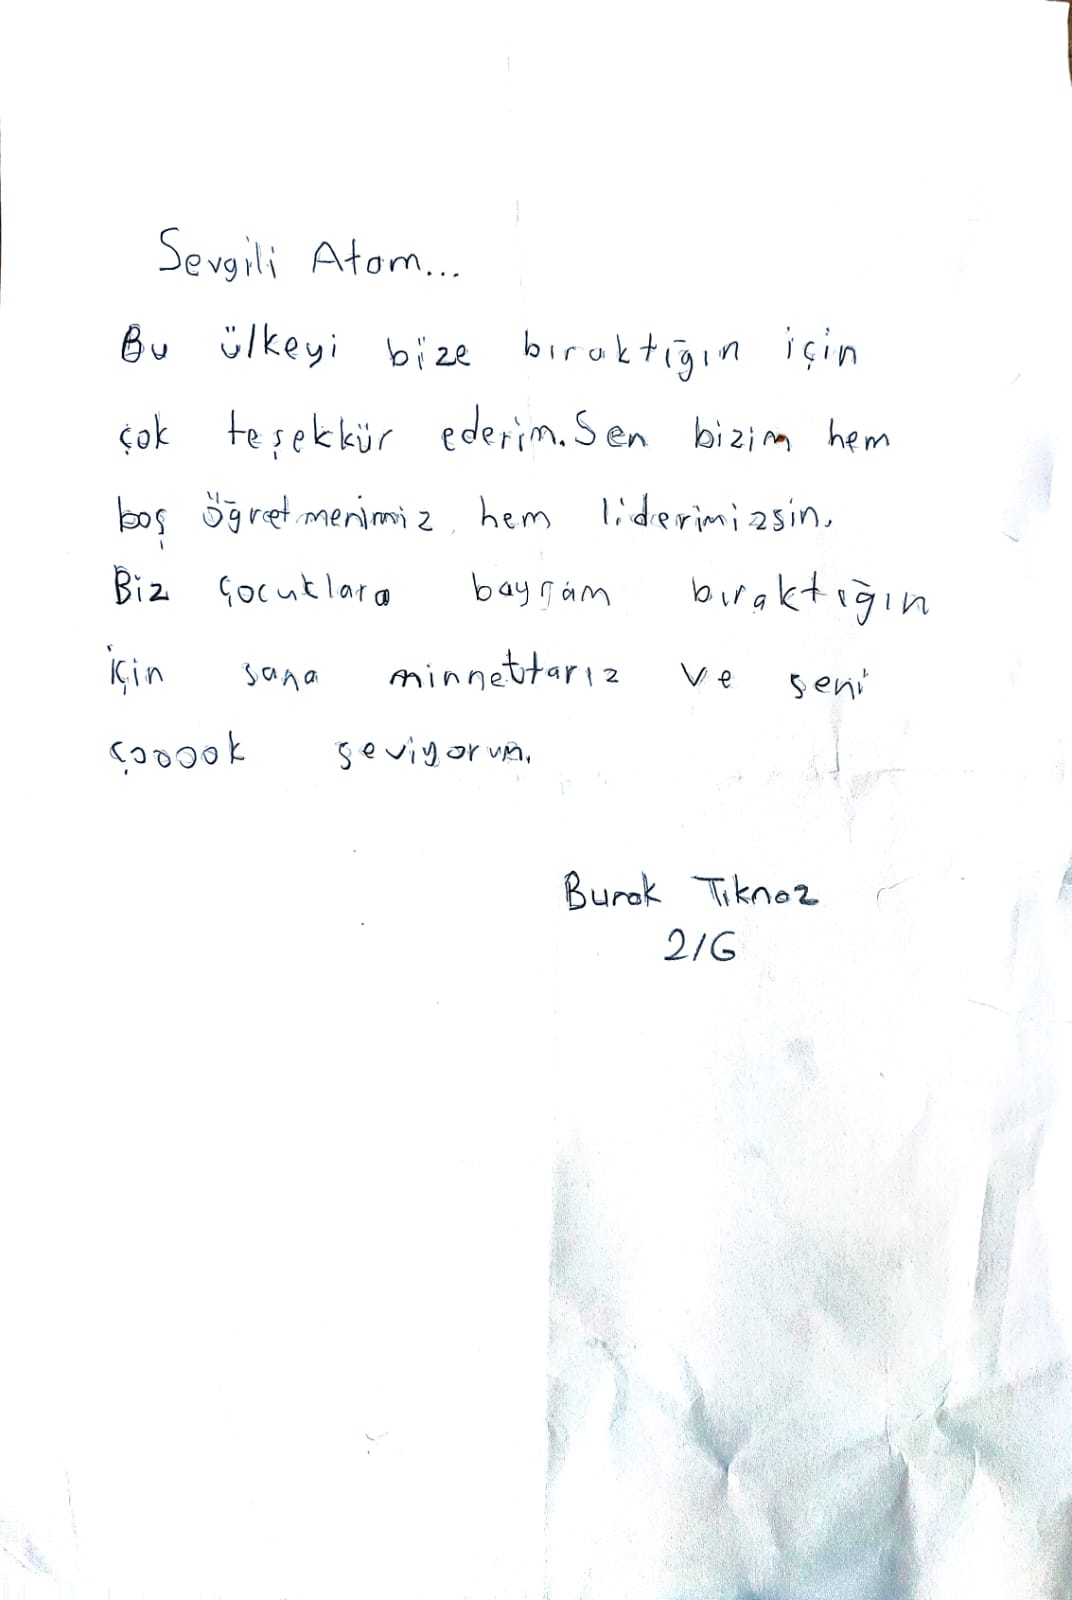 Sevgili Atam...
Bu ülkeyi bize bıraktığın için
çok teşekkür ederim. Sen bizim hem
baş öğretmenimiz, hem liderimizsin.
Biz çocuklara bayram bıraktığın
için sana minnettarız ve seni
çooook seviyorum.
Burak Tıknaz
2/G